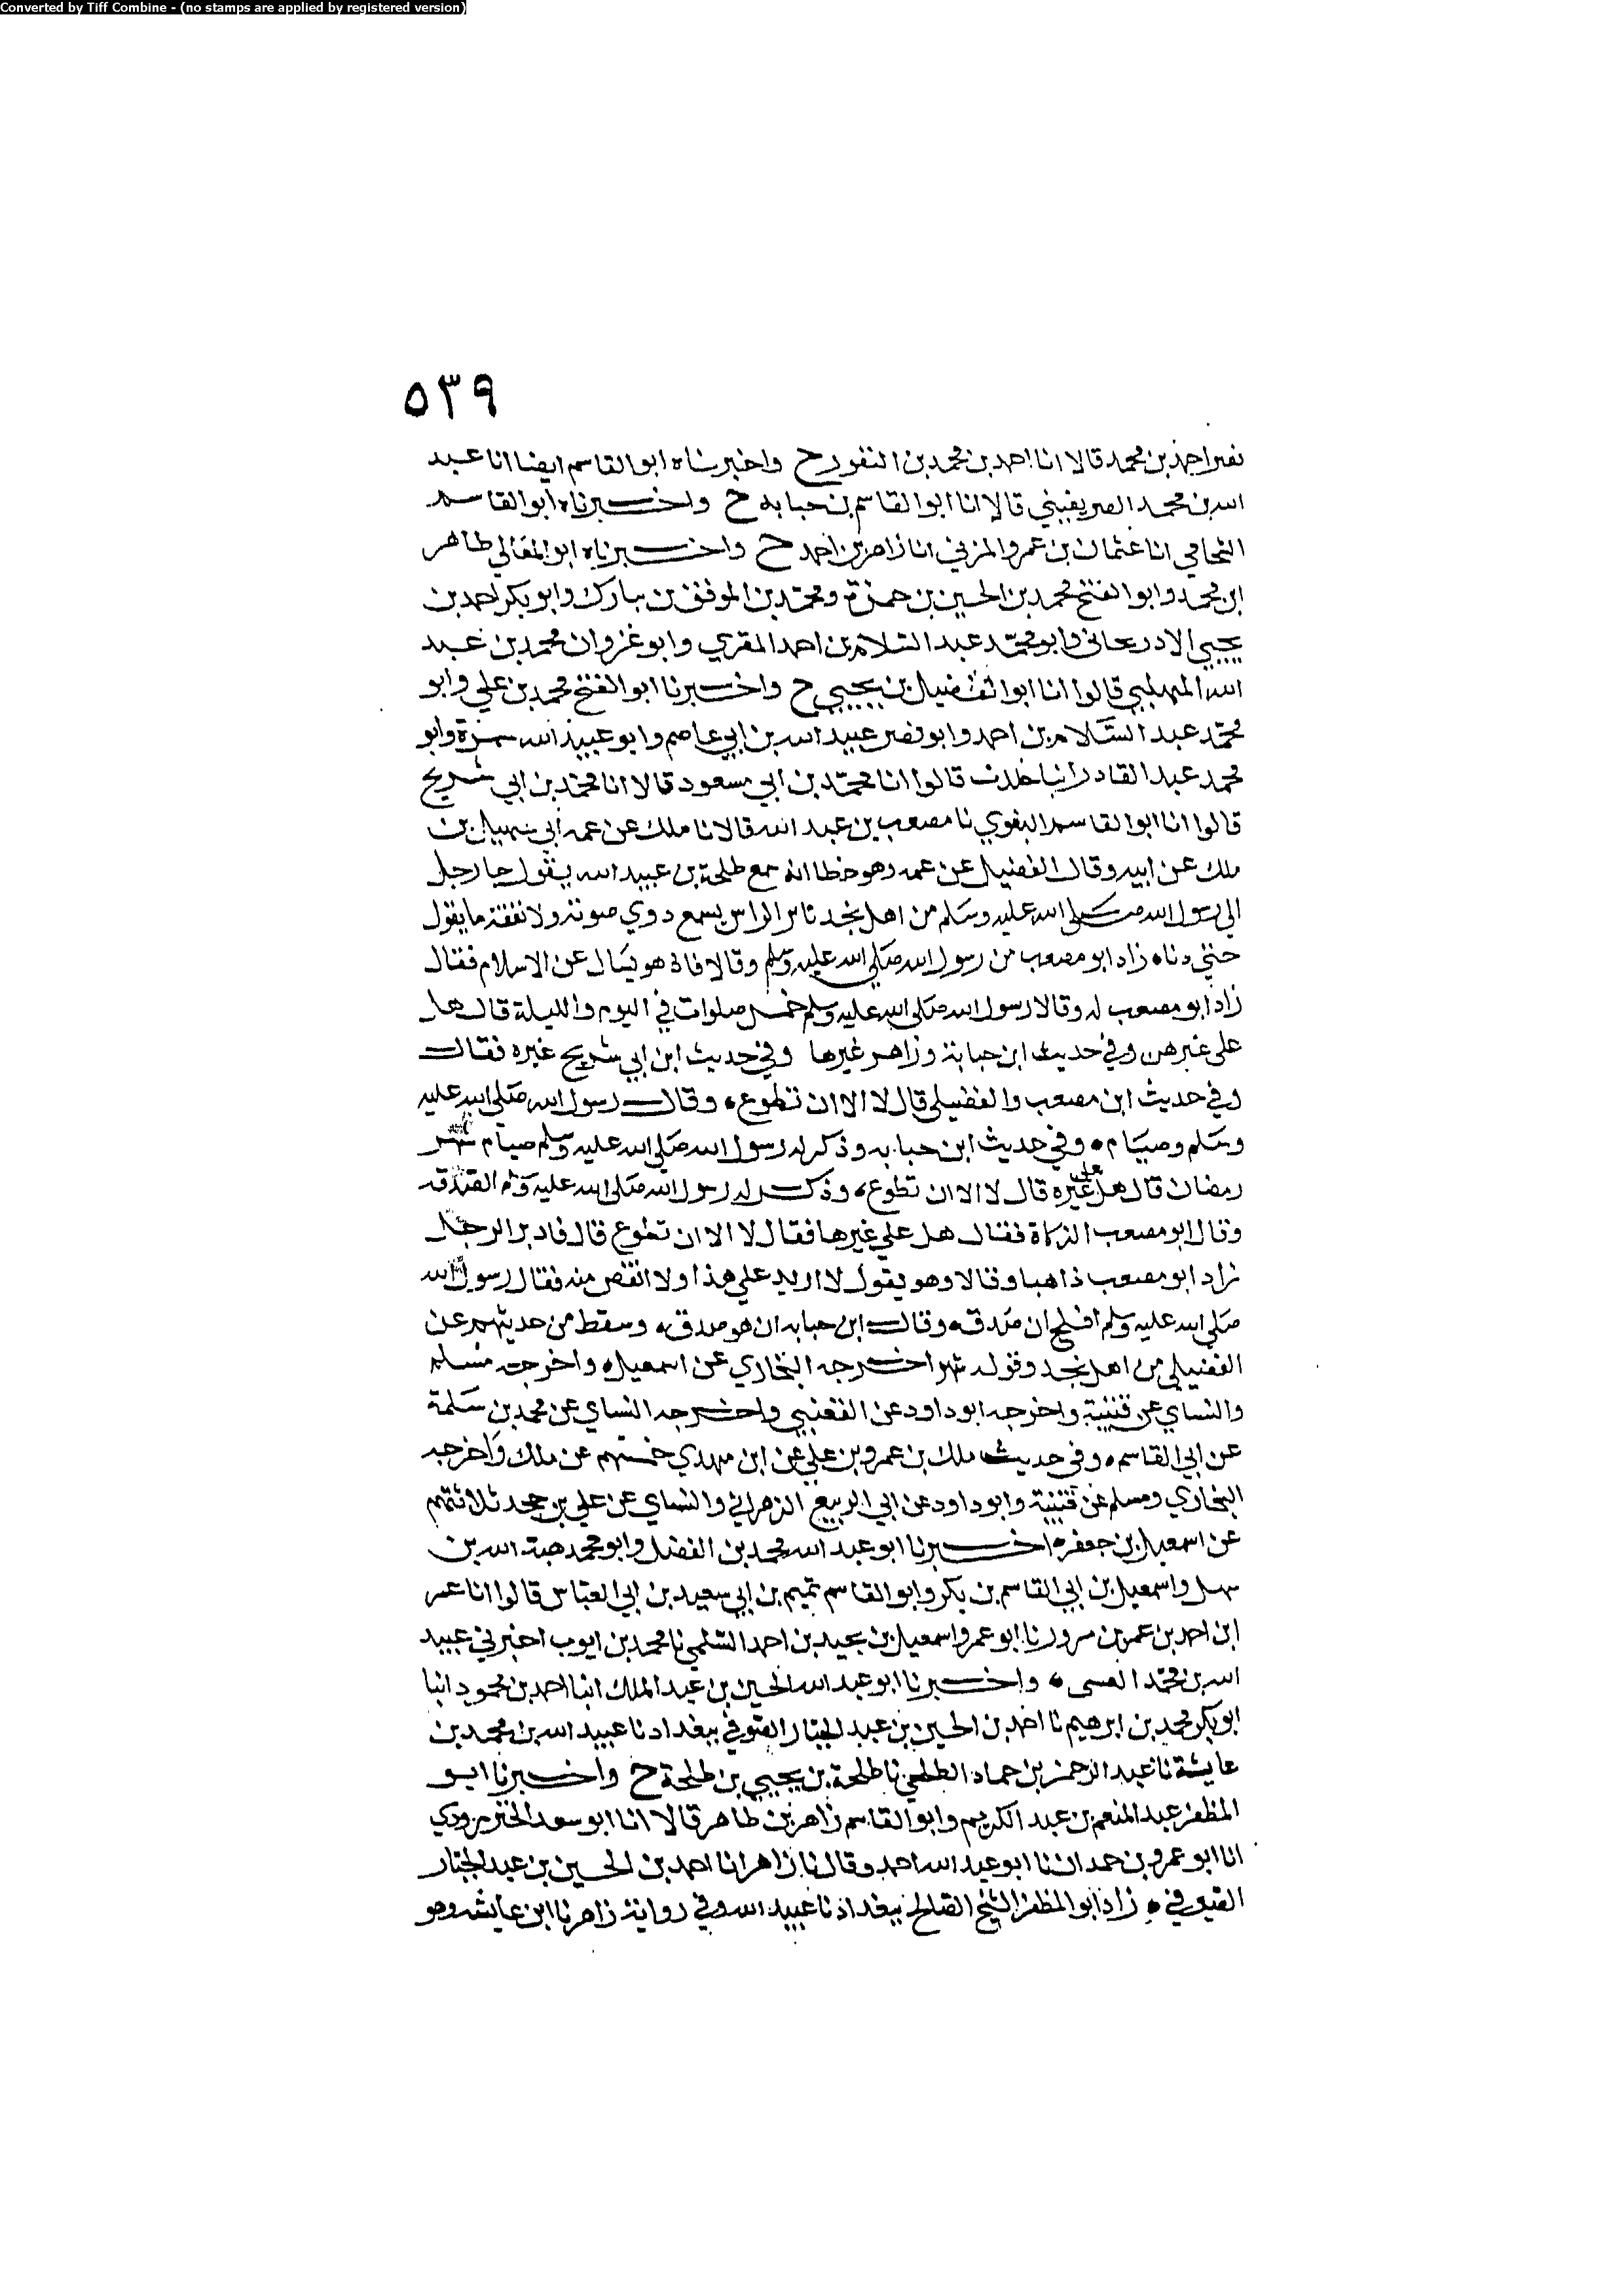 Converted by Tiff Combine - (no stamps are applied by registered version)
٥٣٩
نصر احمد بن محمد قالا انا احمد بن محمد بن النقور ح واخبرناه ابو القاسم ايضا انا عبد
الله بن محمد الصريفيني قالا انا ابو القاسم بن حبابه ح واخبرناه ابو القاسم
الشحامي انا عثمان بن عمرو المزني انا زاهر بن احمد ح واخبرناه ابو المعالي طاهر
ابن محمد وابو الفتح محمد بن الحسين بن حمزة ومحمد بن الموفق بن مبارك وابو بكر احمد بن
يحيي الادريجاني وابو محمد عبد السلام بن احمد المقري وابو غزوان محمد بن عبد
الله المهلبي قالوا انا ابو الفضيل بن يحيي ح واخبرنا ابو الفتح محمد بن علي وابو
محمد عبد السلام بن احمد وابو نصر عبيد الله بن ابي عاصم وابو عبيد الله سمرة وابو
محمد عبد القادر انبا خلدت قالوا انا محمد بن ابي مسعود قالا انا محمد بن ابي شريح
قالوا انا ابو القاسم البغوي نا مصعب بن عبد الله قالا نا ملك عن عمه ابي سهيل بن
ملك عن ابيه وقال الفضيل عن عمه وهو خطا انه سمع طلحة بن عبيد الله يقول جا رجل
الي رسول الله صلي الله عليه وسلم من اهل نجد ثائر الراس يسمع دوي صوته ولا نفقه ما يقول
حتي دناه زاد ابو مصعب من رسول الله صلي الله عليه وسلم وقالا فاذ هو يسال عن الاسلام فقال
زاد ابو مصعب له وقالا رسول الله صلي الله عليه وسلم خمس صلوات في اليوم والليلة قال هل
علي غيرهن وفي حديث ابن حبابة وزاهر غيرها وفي حديث ابن ابي شريح غيره فقال
وفي حديث ابن مصعب والفضيلي قال لا الا ان تطوع ه وقال رسول الله صلي الله عليه
وسلم وصيام ه وفي حديث ابن حبابه وذكر له رسول الله صلي الله عليه وسلم صيام شهر
رمضان قال هل علي غيره قال لا الا ان تطوع ه وذكر له رسول الله صلي الله عليه وسلم الصدقه
وقال ابو مصعب الزكاة فقال هل علي غيرها فقال لا الا ان تطوع قال فادبر الرجل
زاد ابو مصعب ذاهبا وقالا وهو يقول لا ازيد علي هذا ولا انقص منه فقال رسول الله
صلي الله عليه وسلم افلح ان صدق ه وقال ابن حبابه ان هو صدق ه وسقط من حديثهم عن
الفضيلي من اهل نجد وقوله شهر اخرجه البخاري عن اسمعيل ه واخرجه مسلم
والنساي عن قتيبة واخرجه ابو داود عن القعنبي واخرجه النساي عن محمد بن سلمة
عن ابي القاسم ه وفي حديث ملك بن عمرو بن علي عن ابن مهدي خمستهم عن ملك واخرجه
البخاري ومسلم عن قتيبة وابو داود عن ابي الربيع الزهراني والنساي عن علي بن حجد ثلاثتهم
عن اسمعيل بن جعفر ه اخبرنا ابو عبد الله محمد بن الفضل وابو محمد هبة الله بن
سهل واسمعيل بن ابي القاسم بن بكر وابو القاسم تميم بن ابي سعيد بن ابي العباس قالوا انا عمر
ابن احمد بن عمر بن مسرور نا ابو عمرو اسمعيل بن بجيد بن احمد السلمي نا محمد بن ايوب اخبرني عبيد
الله بن محمد العسي ه واخبرنا ابو عبد الله الحسين بن عبد الملك انبا احمد بن محمود انبا
ابو بكر محمد بن ابرهيم نا احمد بن الحسين بن عبد الجبار الصوفي ببغداد نا عبيد الله بن محمد بن
عايشة نا عبد الرحمن بن حماد الطلحي نا طلحة بن يحيي بن طلحة ح واخبرنا ابو
المظفر عبد المنعم بن عبد الكريم وابو القاسم زاهر بن طاهر قالا انا ابو سعد الخنزرودي
انا ابو عمرو بن حمدان نا ابو عبد الله احمد وقال نا زاهر انا احمد بن الحسين بن عبد الجبار
الصوفي ه زاد ابو المظفر الشيخ الصالح ببغداد نا عبيد الله وفي رواية زاهر نا ابن عايشه وهو